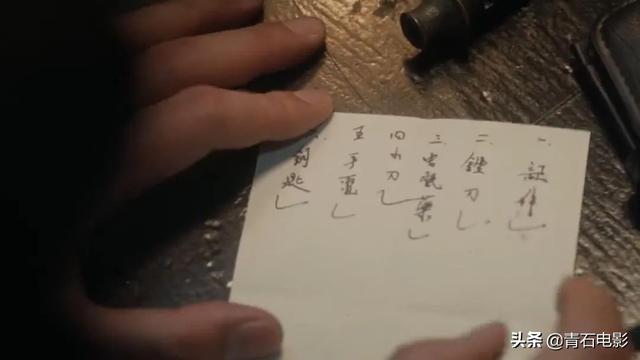 一、証件
二、銼刀
三、藥
四小刀
五手電
匙
头条 @青石电影